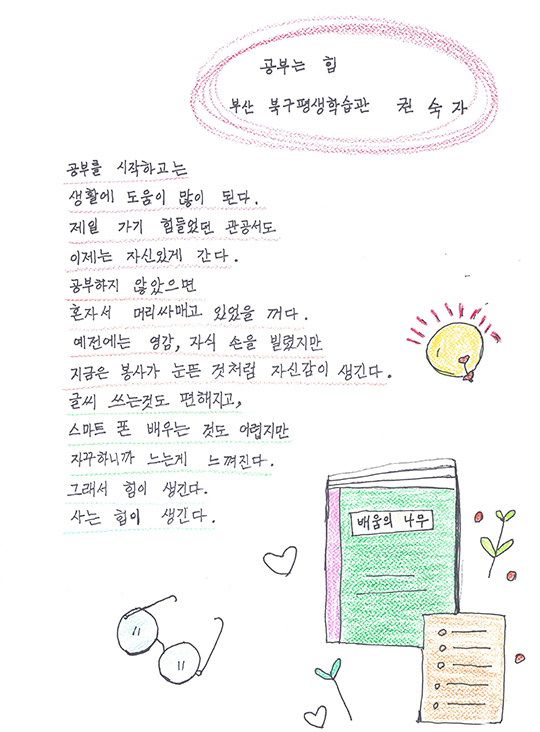 공부는 힘
부산 북구평생학습관 권숙자
공부를 시작하고는
생활에 도움이 많이 된다.
제일 가기 힘들었던 관공서도
이제는 자신있게 간다.
공부하지 않았으면
혼자서 머리싸매고 있었을 꺼다.
예전에는 영감, 자식 손을 빌렸지만
지금은 봉사가 눈뜬 것처럼 자신감이 생긴다.
글씨 쓰는것도 편해지고,
스마트 폰 배우는 것도 어렵지만
자꾸하니까 느는게 느껴진다.
그래서 힘이 생긴다.
사는 힘이 생긴다.
배움의 나무